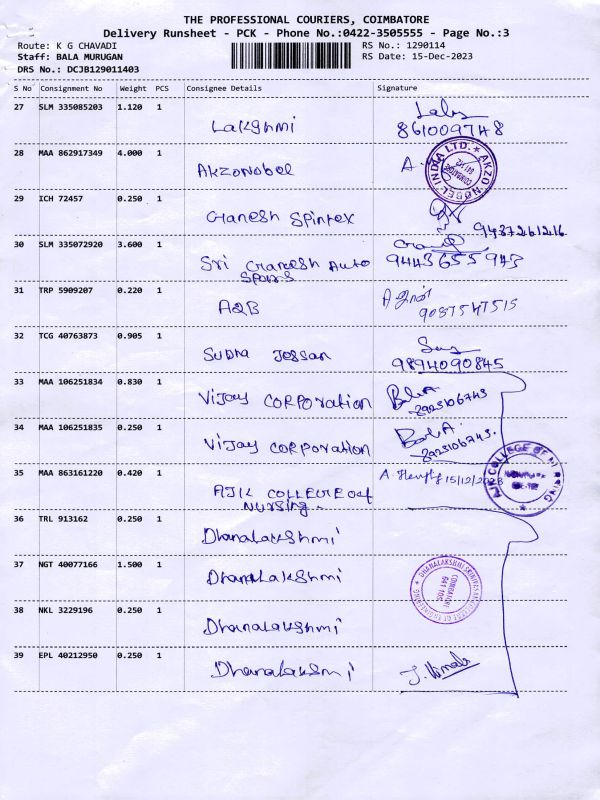 THE PROFESSIONAL COURIERS, COIMBATORE
Delivery Runsheet - PCK - Phone No.:0422-3505555 - Page No.:3
Route: K G CHAVADI RS No.: 1290114
Staff: BALA MURUGAN RS Date: 15-Dec-2023
DRS No.: DCJB129011403
S No Consignment No Weight PCS Consignee Details Signature
27 SLM 335085203 1.120 1 Lakshmi
8610097748
28 MAA 862917349 4.000 1 AkzoNobel A.
AKZO NOBEL INDIA LTD.
29 ICH 72457 0.250 1 Ganesh Spintex
9487261216
30 SLM 335072920 3.600 1 Sri Ganesh Auto
Spares 9443655943
31 TRP 5909207 0.220 1 A2B
9087547515
32 TCG 40763873 0.905 1 Subha Jessan
9894090845
33 MAA 106251834 0.830 1 Vijay CORPORation Bala
34 MAA 106251835 0.250 1 Vijay CORPORation Bala
35 MAA 863161220 0.420 1 AJK COLLEGE of
NURSING 15/12/2023
AJK COLLEGE OF NURSING
36 TRL 913162 0.250 1 DhanaLakshmi
37 NGT 40077166 1.500 1 DhanaLakshmi
COIMBATORE
641 105
38 NKL 3229196 0.250 1 DhanaLakshmi
39 EPL 40212950 0.250 1 DhanaLakshmi J. Vimala